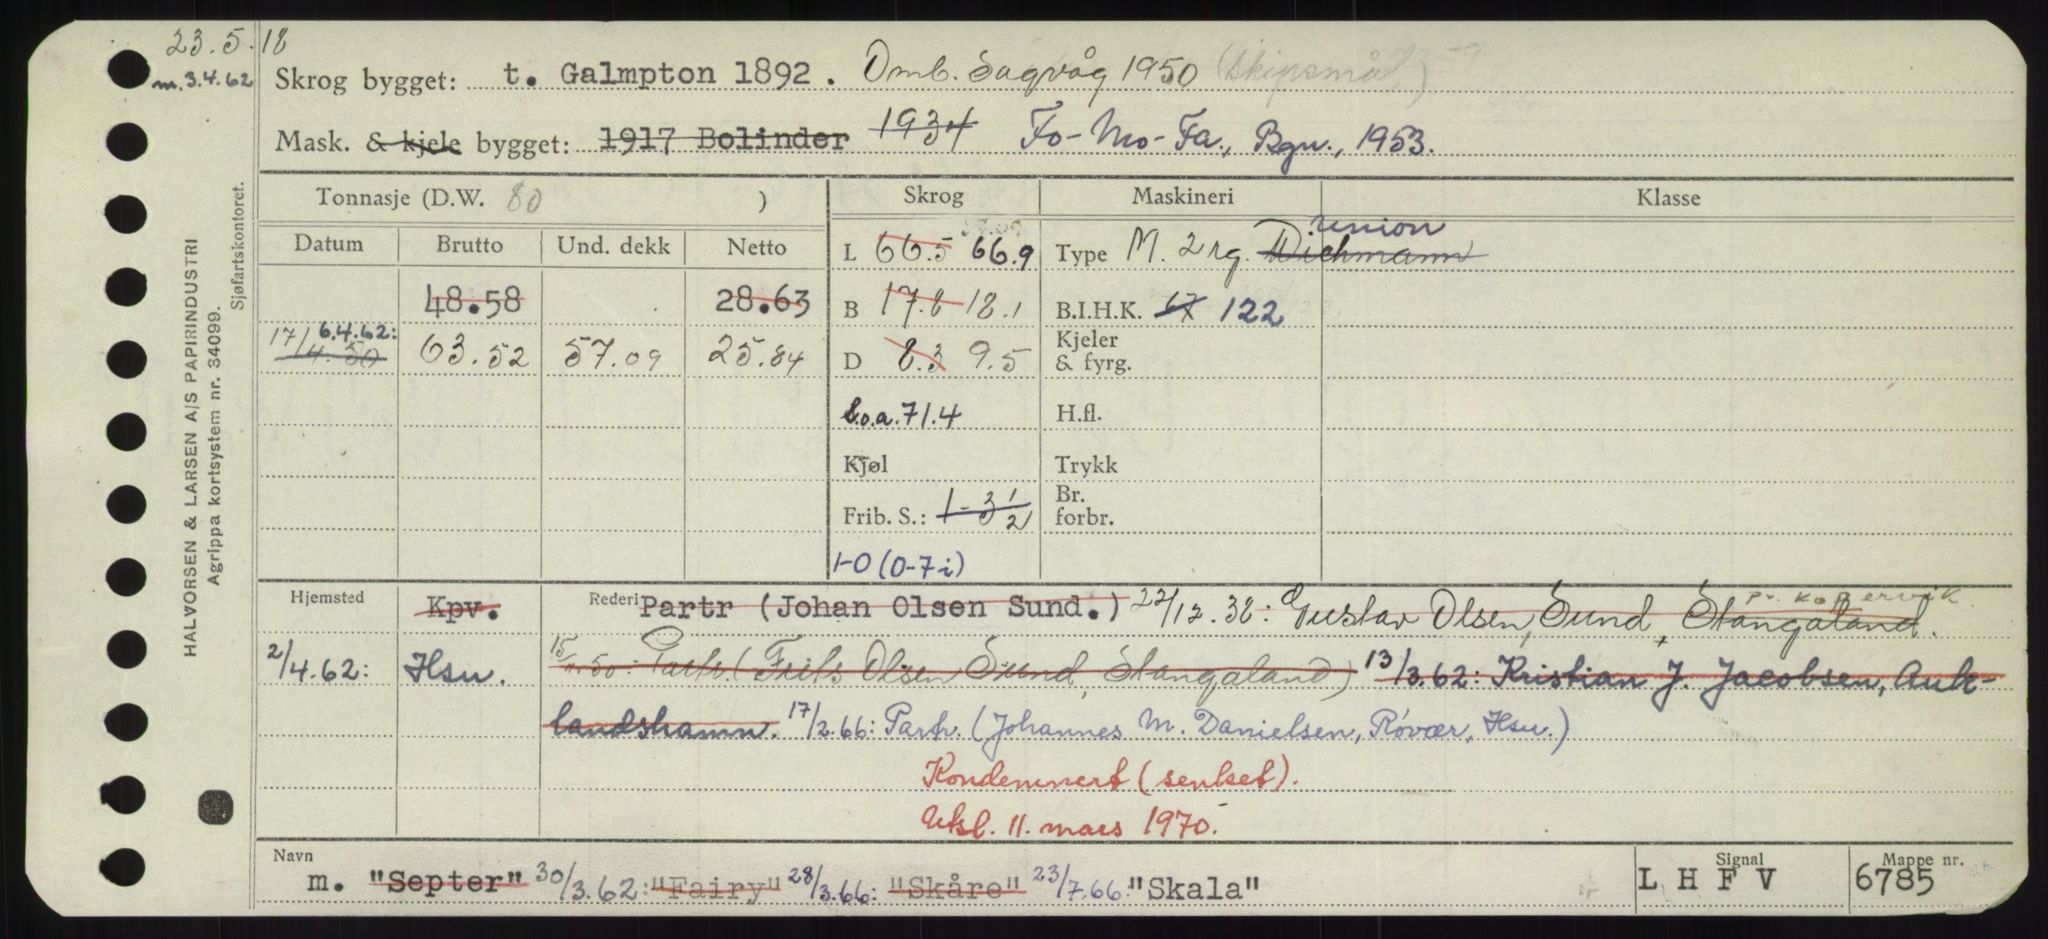 23.5.18
m. 3.4.62
Skrog bygget: t. Galmpton 1892. Omb. Sagvåg 1950 (skipsmål)
Mask. & kjele bygget: 1917 Bolinder 1934 Fo-Mo-Fa., Bgn., 1953.
Tonnasje (D.W. 80 ) Skrog Maskineri Klasse
Datum Brutto Und. dekk Netto L 66.5 66.9 Type M. 2 rg. Wichmann Union
48.58 28.63 B 17.8 18.1 B.I.H.K. 67 122
17/4.50 6.4.62: 63.52 57.09 25.84 D 8.3 9.5 Kjeler & fyrg.
l.o.a. 71.4 H.fl.
Kjøl Trykk
Frib. S.: 1-3 1/2 Br. forbr.
1-0 (0-7 i)
Hjemsted Kpv. Rederi Partr (Johan Olsen Sund.) 22/12.38: Gustav Olsen Sund, Stangaland. pr. Kopervik
2/4.62: Hsu. 15/11.50: Partr. (Frits Olsen Sund, Stangaland) 13/3.62: Kristian J. Jacobsen, Auk-
landshamn. 17/2.66: Partr. (Johannes M. Danielsen, Røvær, Hsu.)
Kondemnert (senket).
Utsl. 11. mars 1970.
Navn Signal Mappe nr.
m. "Septer" 30/3.62: "Fairy" 28/3.66: "Skåre" 23/7.66: "Skala" L H F V 6785
HALVORSEN & LARSEN A/S PAPIRINDUSTRI
Agrippa kortsystem nr. 34099.
Sjøfartskontoret.